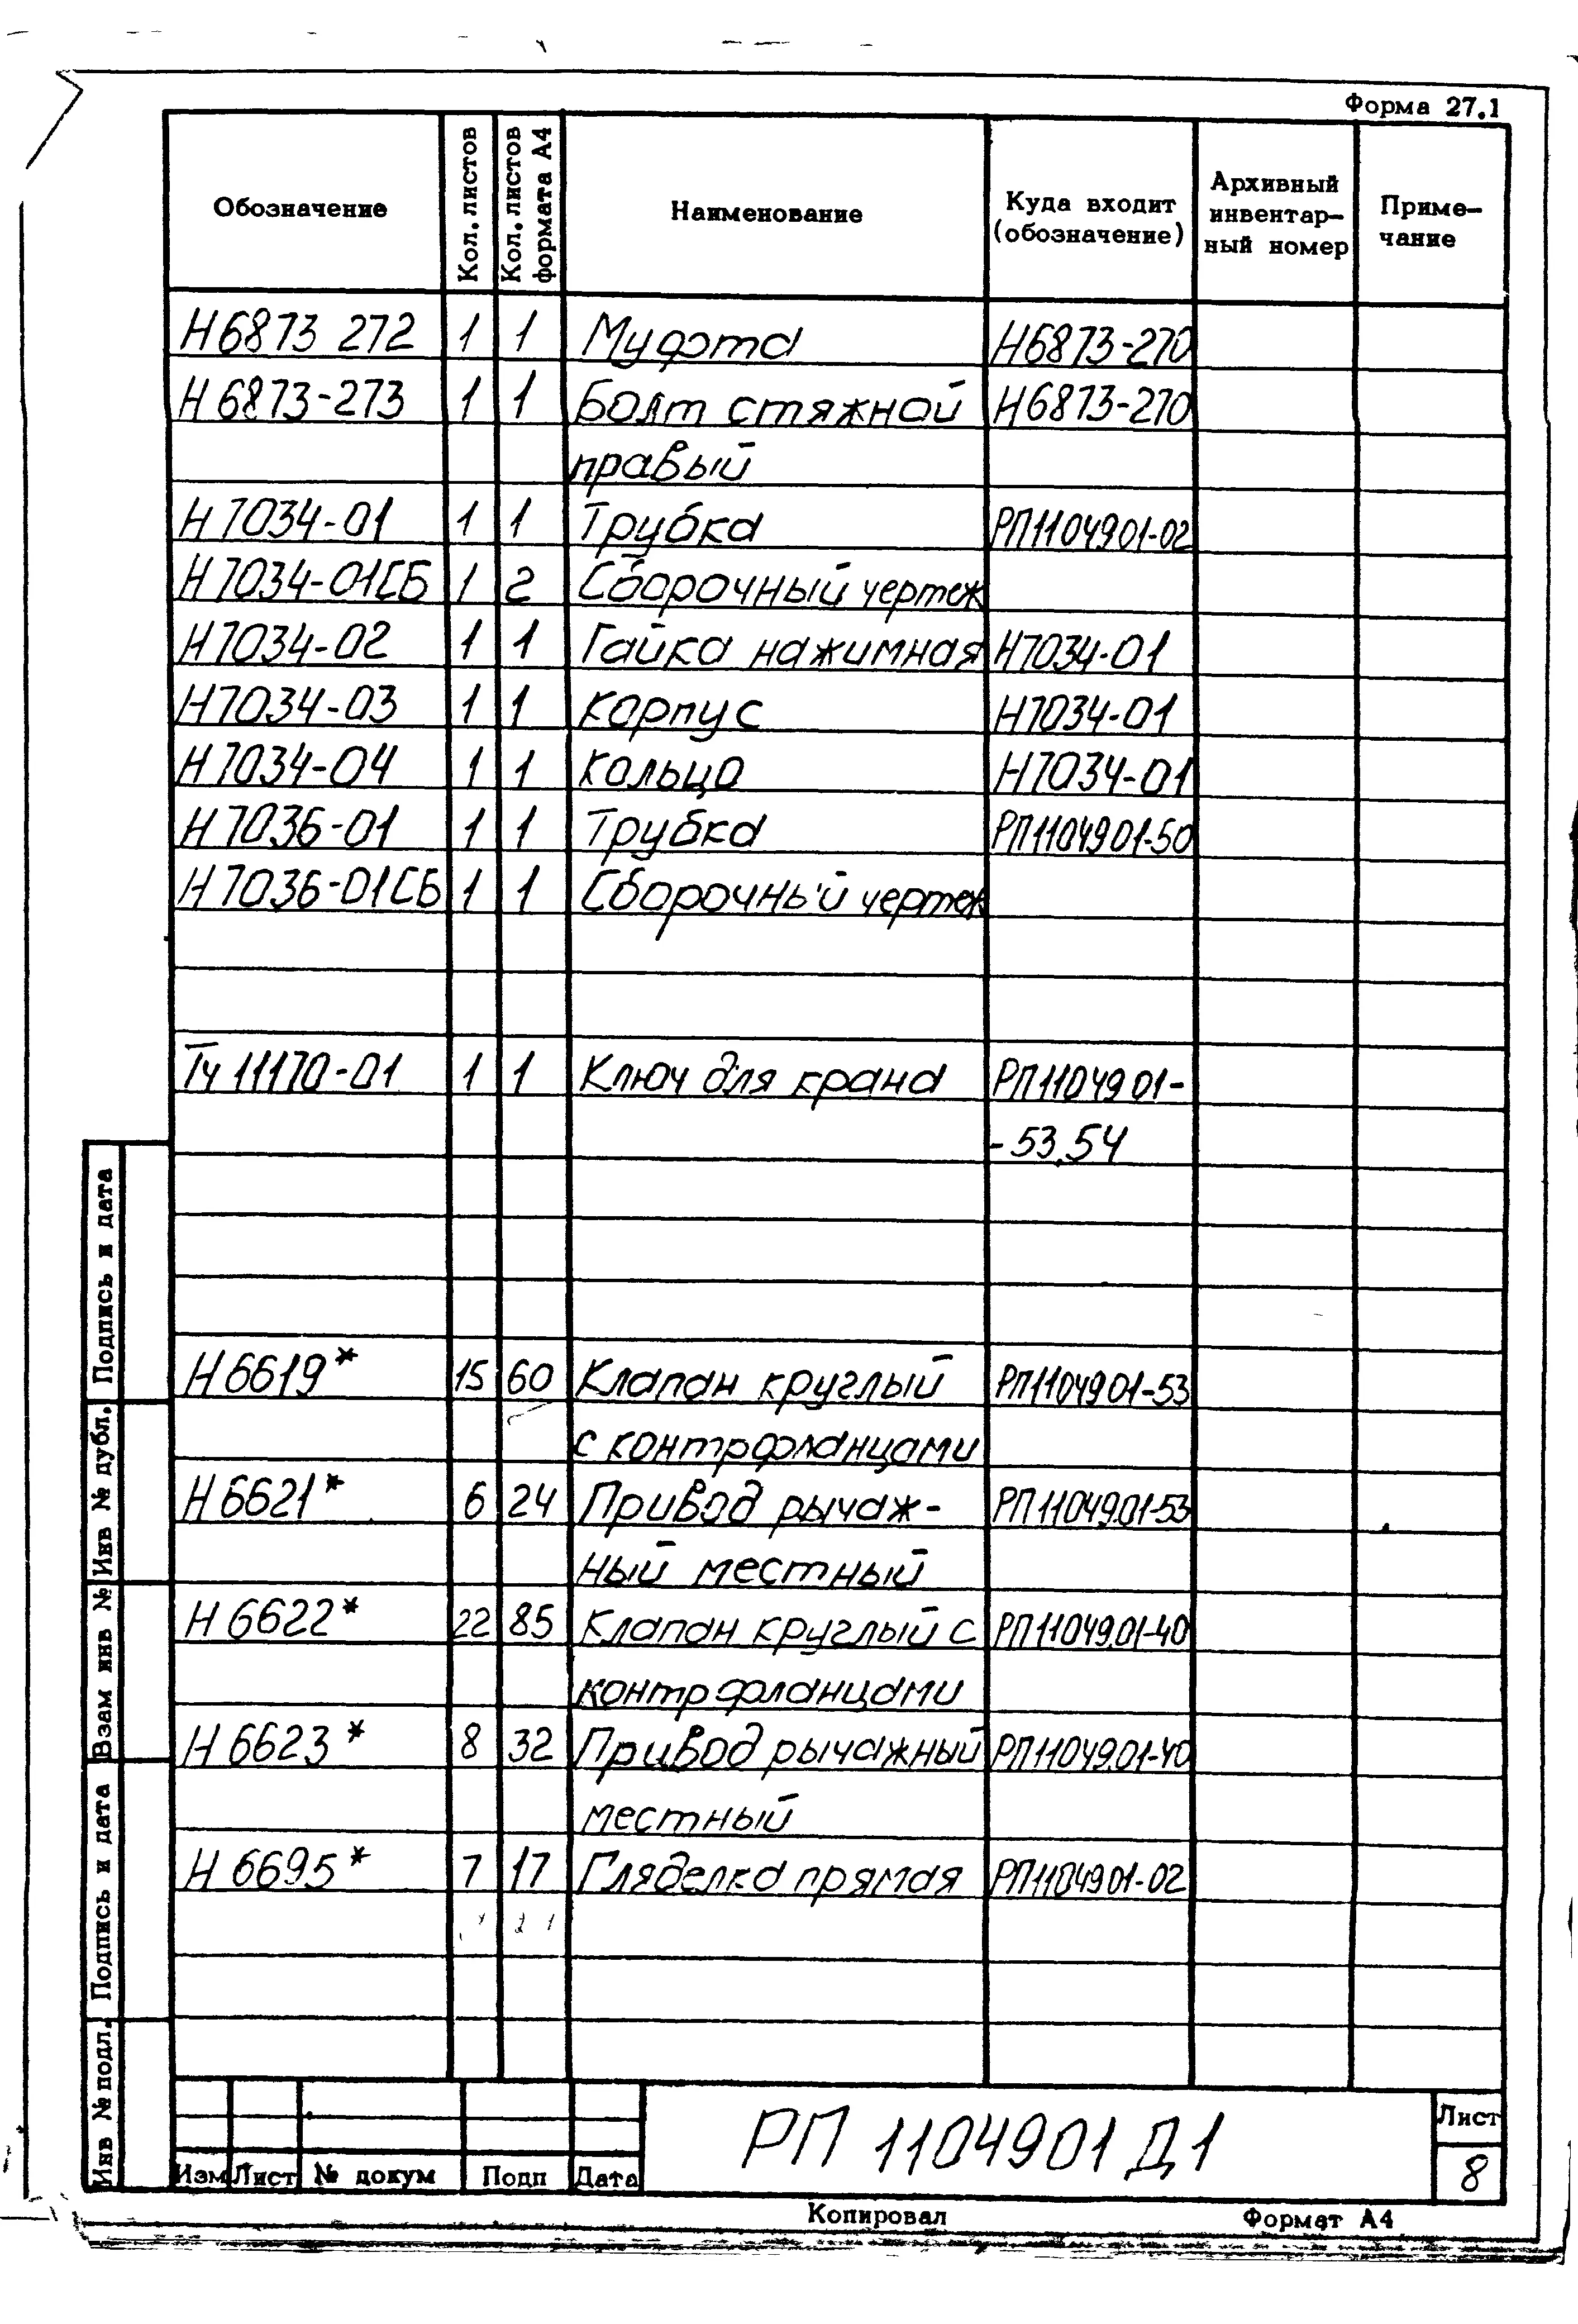 Форма 27.1
Обозначение
Кол. листов
Кол. листов формата А4
Наименование
Куда входит (обозначение)
Архивный инвентар- ный номер
Приме- чание
Н6873 272 1 1 Муфта Н6873-270
Н6873-273 1 1 Болт стяжной Н6873-270
правый
Н7034-01 1 1 Трубка РП1104901-02
Н7034-01СБ 1 2 Сборочный чертеж
Н7034-02 1 1 Гайка нажимная Н7034-01
Н7034-03 1 1 Корпус Н7034-01
Н7034-04 1 1 Кольцо Н7034-01
Н7036-01 1 1 Трубка РП1104901-50
Н7036-01СБ 1 1 Сборочный чертеж
Тч 11170-01 1 1 Ключ для крана РП1104901-
-53,54
Н6619* 15 60 Клапан круглый РП1104901-53
с контрфланцами
Н6621* 6 24 Привод рычаж- РП1104901-53
ный местный
Н6622* 22 85 Клапан круглый с РП1104901-40
контрфланцами
Н6623* 8 32 Привод рычажный РП1104901-40
местный
Н6695* 7 17 Гляделка прямая РП1104901-02
Подпись и дата
Инв № дубл.
Взам инв №
Подпись и дата
Инв № подл.
Изм Лист № докум Подп Дата
РП 1104901 Д1
Лист
8
Копировал Формат А4